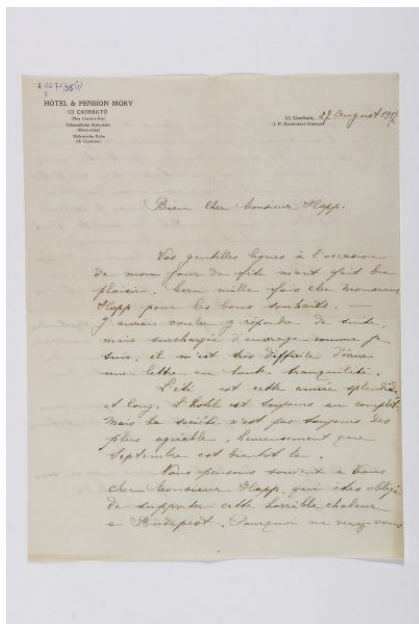 HÔTEL & PENSION MÓRY
UJ CSORBATÓ
Uj Csorbató, 27 August 19
Bien cher Monsieur Happ.
Vos gentilles lignes à l'occasion
de mon jour de fête m'ont fait bien
plaisir. Merci mille fois cher Monsieur
Happ pour les bons souhaits. —
J'aurais voulu y répondre de suite,
mais surchargée d'ouvrage comme je
suis, il m'est très difficile d'écrire
une lettre en toute tranquilité.
L'été est cette année splendide
et long. L'hôtel est toujours au complet,
mais la société n'est pas toujours des
plus agréable, heureusement que
Septembre est bientôt là.
Nous pensons souvent à vous
cher Monsieur Happ, qui êtes obligé
de supporter cette horrible chaleur
à Budapest. Pourquoi ne venez-vous